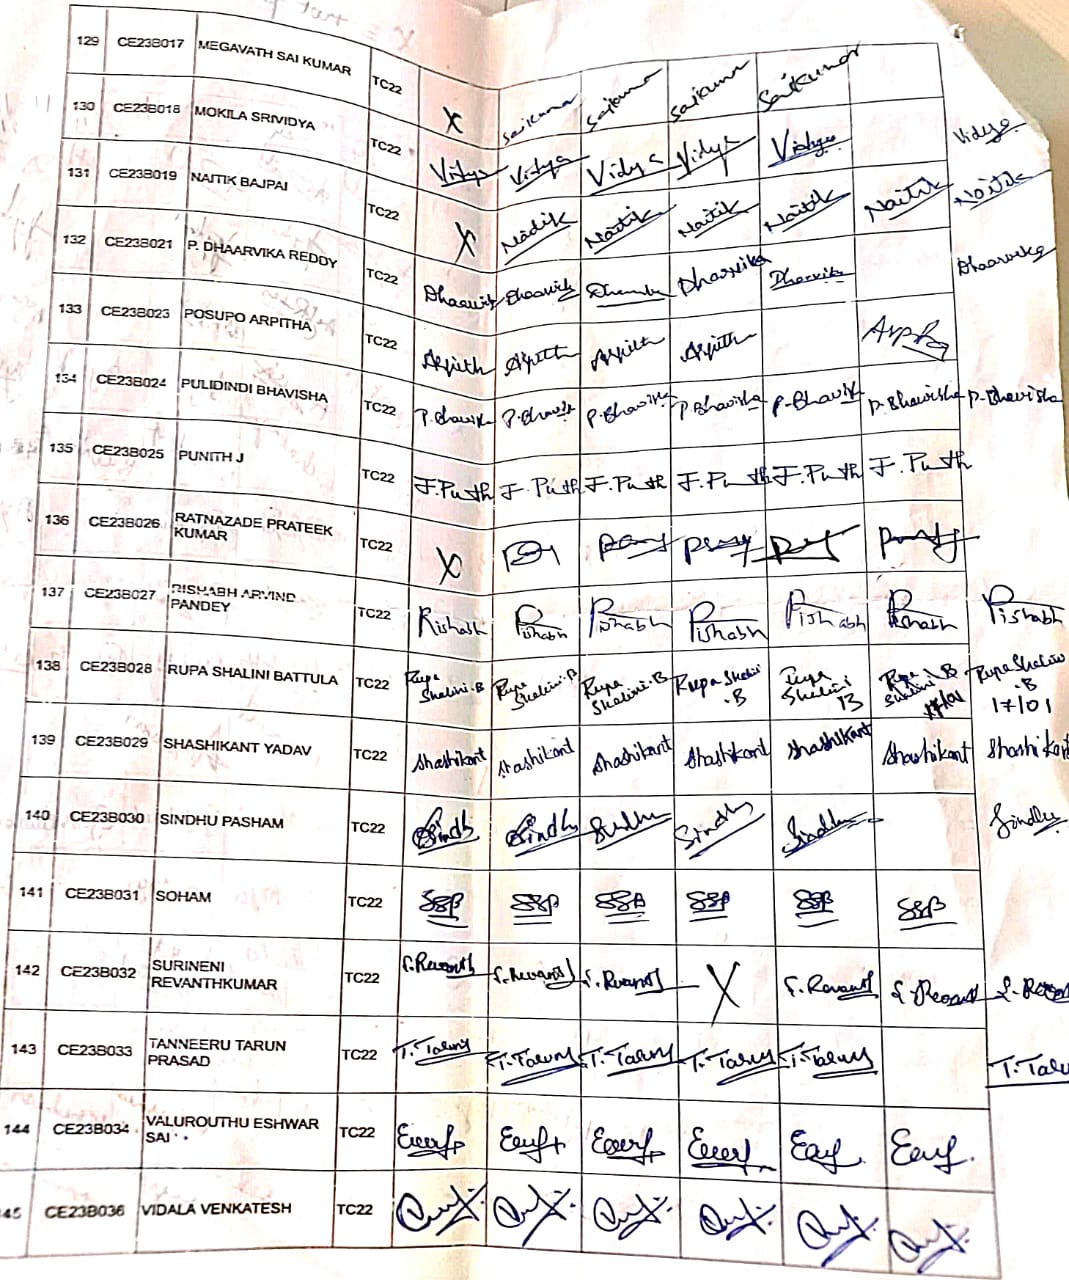 129 CE23B017 MEGAVATH SAI KUMAR TC22 X Saikumar Saikumar Saikumar Saikumar
130 CE23B018 MOKILA SRIVIDYA TC22 Vidya Vidya Vidya Vidya Vidya Vidya
131 CE23B019 NAITIK BAJPAI TC22 X Naitik Naitik Naitik Naitik Naitik Naitik
132 CE23B021 P. DHAARVIKA REDDY TC22 Dhaarvika Dhaarvika Dhaarvika Dhaarvika Dhaarvika
133 CE23B023 POSUPO ARPITHA TC22 Arpith Arpith Arpith Arpith
134 CE23B024 PULIDINDI BHAVISHA TC22 P.Bhavish P.Bhavish P.Bhavisha P.Bhavisha P.Bhavish P.Bhavisha P.Bhavisha
135 CE23B025 PUNITH J TC22 J.Punith J.Punith J.Punith J.Punith J.Punith J.Punith
136 CE23B026 RATNAZADE PRATEEK
KUMAR TC22 X
137 CE23B027 RISHABH ARVIND
PANDEY TC22 Rishabh Rishabh Rishabh Rishabh Rishabh Rishabh Rishabh
138 CE23B028 RUPA SHALINI BATTULA TC22 Rupa Rupa Rupa Rupa Shalini Rupa Rupa Rupa Shalini
Shalini.B Shalini.B Shalini.B .B Shalini Shalini .B .B
B 17/01 17/01
139 CE23B029 SHASHIKANT YADAV TC22 Shashikant Shashikant Shashikant Shashikant Shashikant Shashikant Shashikant
140 CE23B030 SINDHU PASHAM TC22 Sindhu Sindhu Sindhu Sindhu Sindhu Sindhu
141 CE23B031 SOHAM TC22 SSB SSB SSB SSB SSB SSB
142 CE23B032 SURINENI
REVANTHKUMAR TC22 S.Revanth S.Revanth S.Revanth X S.Revanth S.Revanth S.Revanth
143 CE23B033 TANNEERU TARUN
PRASAD TC22 T.Tarun T.Tarun T.Tarun T.Tarun T.Tarun T.Taru
144 CE23B034 VALUROUTHU ESHWAR
SAI TC22
45 CE23B036 VIDALA VENKATESH TC22